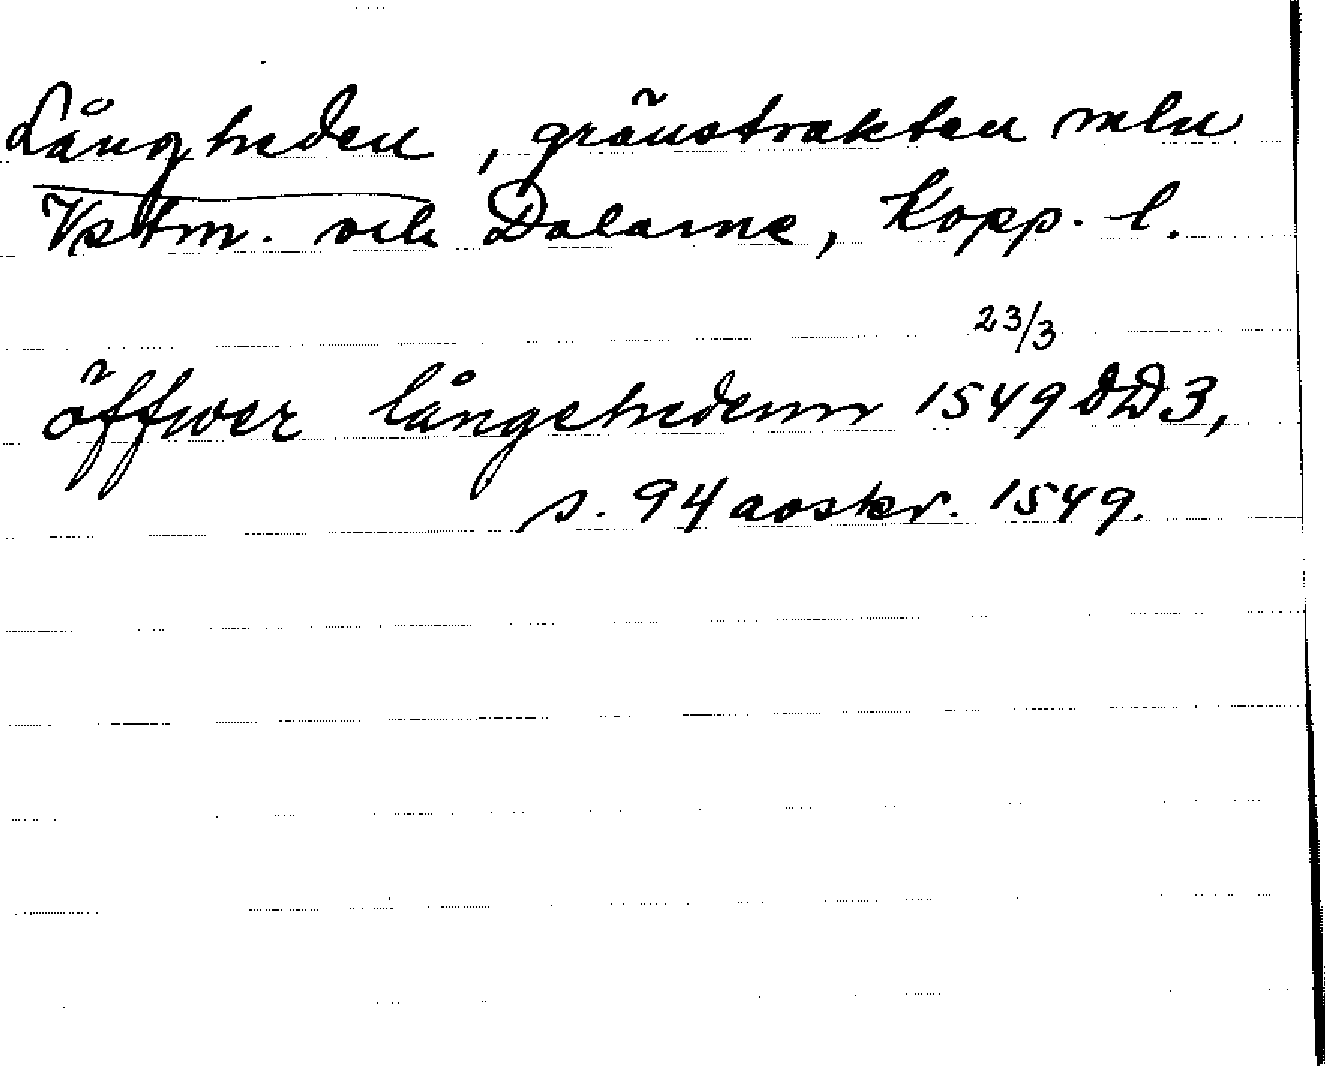 Långheden, gränstrakten mln
Vstm. och Dalarna, Kopp. l.
23/3
öffwer långehedenn 1549 DD3,
s. 94 aoskr. 1549.